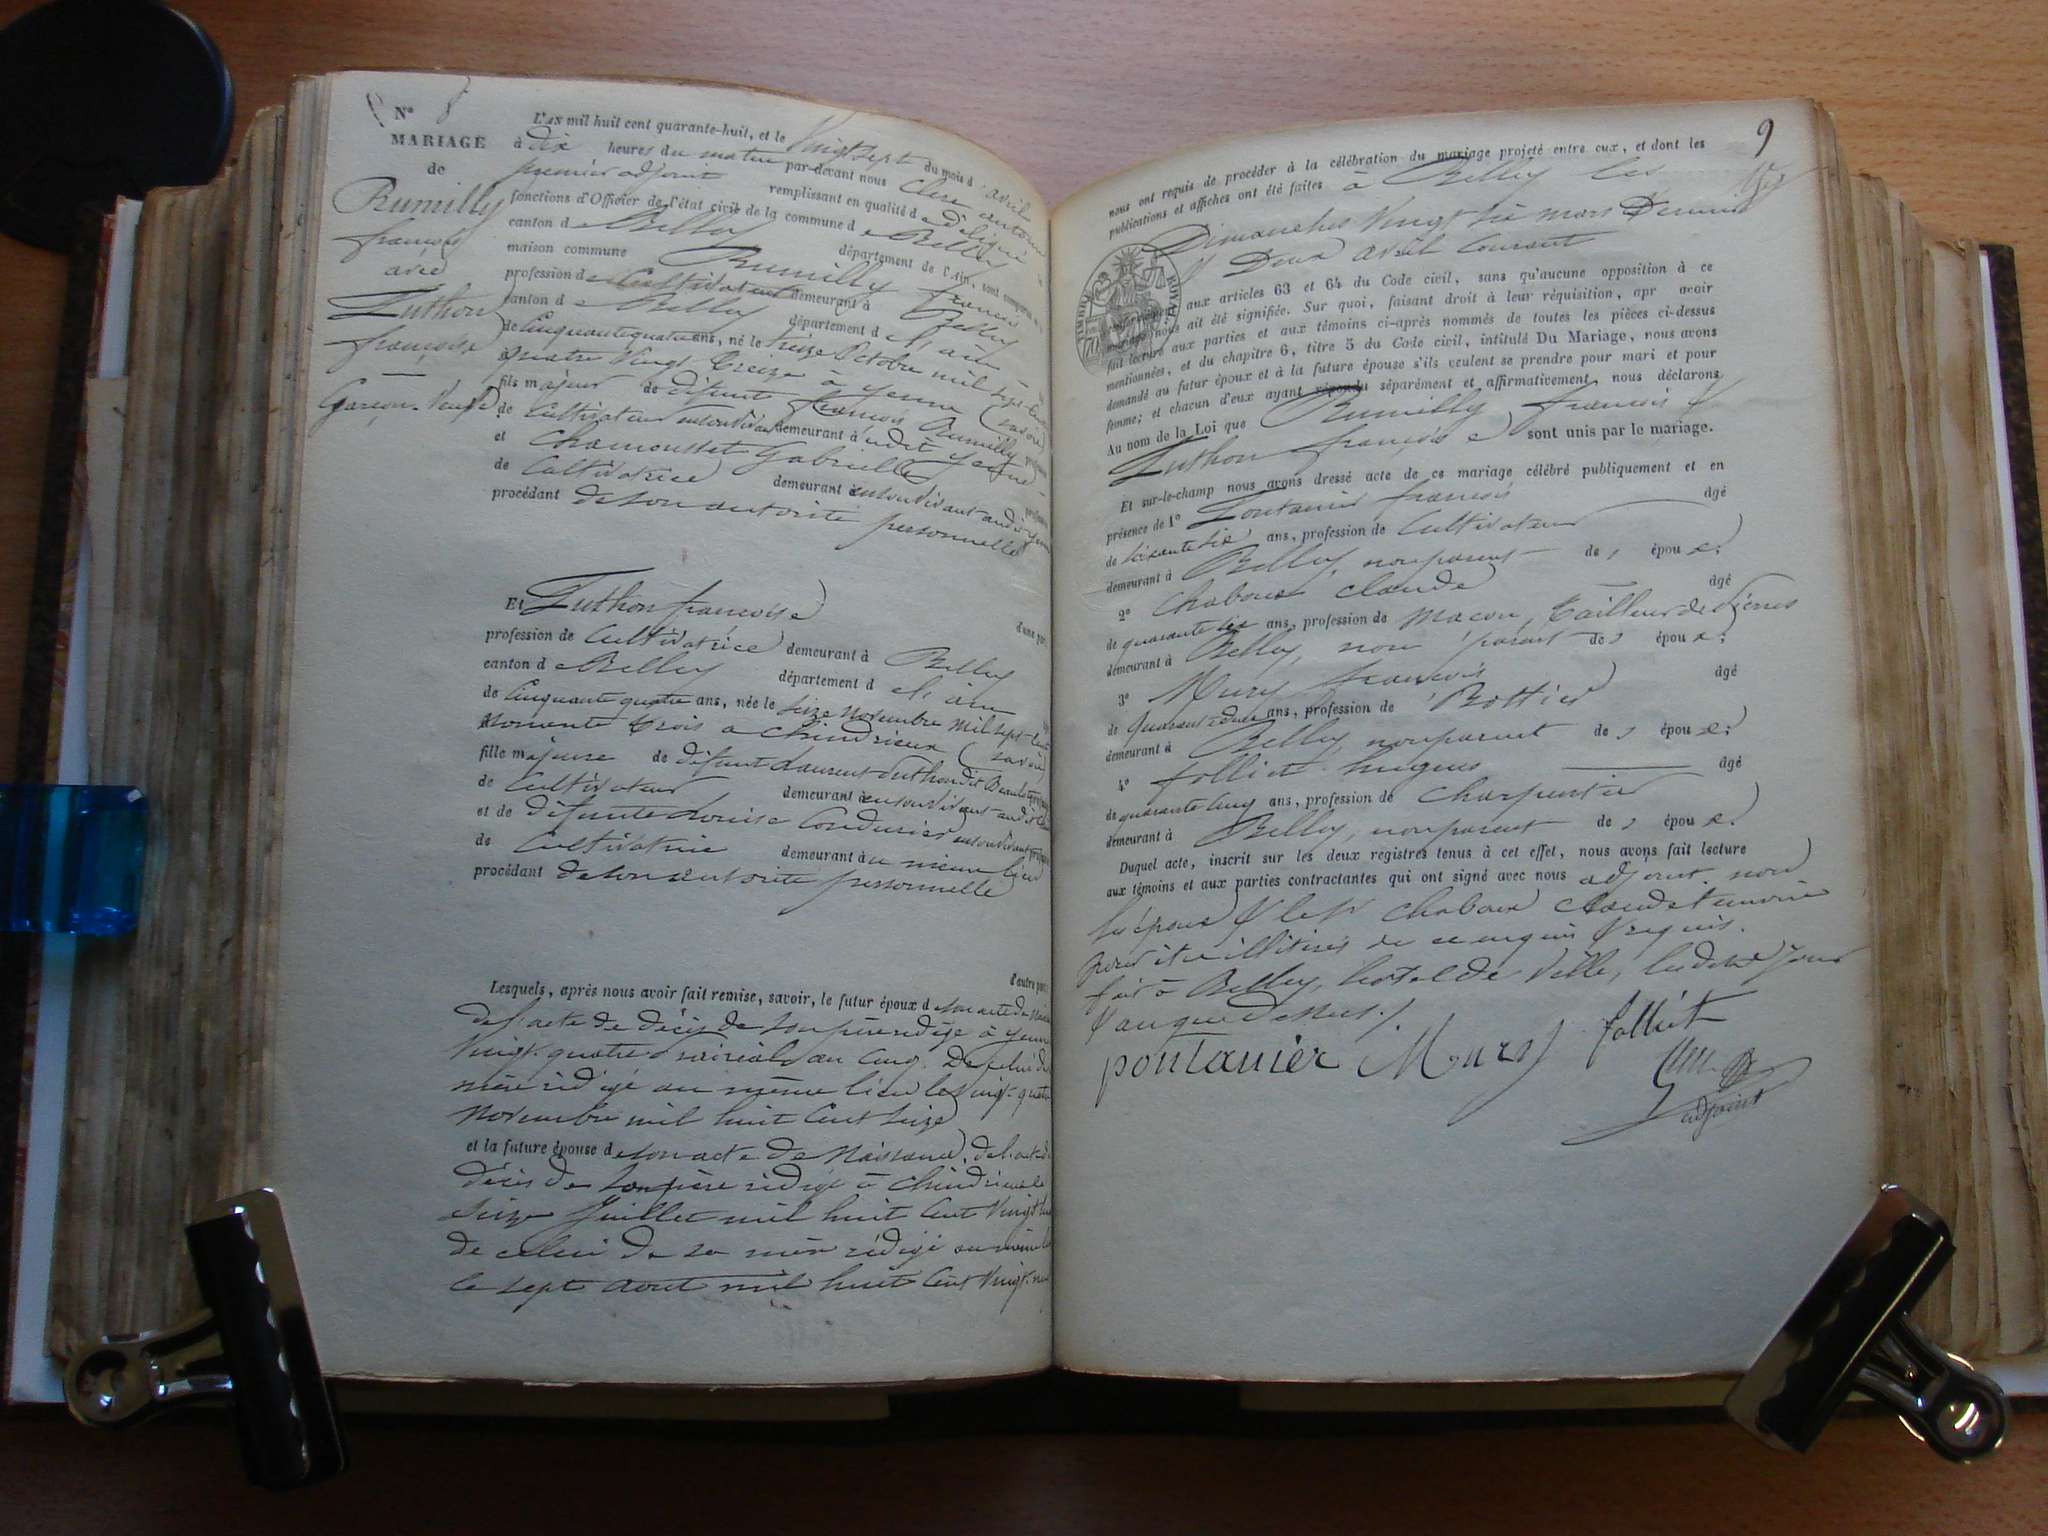 N° 8
MARIAGE
de
Rumilly
françois
avec
Luthon
françoise
Garçon. Veuve
L'an mil huit cent quarante-huit, et le Vingt sept du mois d avril
à dix heures du matin par-devant nous
premier adjoint remplissant en qualité de délégué
fonctions d'Officier de l'état civil de la commune de Belley
canton de Belley département de l'Ain, sont comparus
maison commune Rumilly françois
profession de Cultivateur demeurant à Belley
canton de Belley département de l'ain
de Cinquante quatre ans, né le seize Octobre mil sept cent
quatre Vingt treize à yenne (savoie)
fils majeur de défunts françois Rumilly
de Cultivateur en son vivant demeurant à udit yenne
et Chamousset Gabrielle
de Cultivatrice demeurant en son vivant audit yenne
procédant de son autorité personnelle
d'une part
Et Luthon françoise
profession de Cultivatrice demeurant à Belley
canton de Belley département de l'ain
de Cinquante quatre ans, née le seize novembre mil sept cent
nonante trois à Chindrieux (savoie)
fille majeure de défunt Laurent Luthon dit
de Cultivateur demeurant en son vivant audit
et de défunte Louise en son vivant
de Cultivatrice demeurant au même lieu
procédant de son autorité personnelle
d'autre part
Lesquels, après nous avoir fait remise, savoir, le futur époux de son acte de
de l'acte de décès de son père rédigé à yenne
Vingt quatre prairial an Cinq. De celui de
mère rédigé au même lieu le Vingt quatre
novembre mil huit Cent seize
et la future épouse de son acte de Naissance, de l'acte de
décès de son père rédigé à Chindrieux le
seize Juillet mil huit Cent Vingt
de celui de sa mère rédigé au même
le sept aout mil huit Cent Vingt
9
nous ont requis de procéder à la célébration du mariage projeté entre eux, et dont les
publications et affiches ont été faites à Belley les
Dimanches Vingt six mars Dernier
& Deux avril Courant
TIMBRE ROYAL
aux articles 63 et 64 du Code civil, sans qu'aucune opposition à ce
mariage nous ait été signifiée. Sur quoi, faisant droit à leur réquisition, apr avoir
fait lecture aux parties et aux témoins ci-après nommés de toutes les pièces ci-dessus
mentionnées, et du chapitre 6, titre 5 du Code civil, intitulé Du Mariage, nous avons
demandé au futur époux et à la future épouse s'ils veulent se prendre pour mari et pour
femme; et chacun d'eux ayant répondu séparément et affirmativement, nous déclarons
Au nom de la Loi que Rumilly françois &
Luthon françoise sont unis par le mariage.
Et sur-le-champ nous avons dressé acte de ce mariage célébré publiquement et en
présence de 1° françois âgé
de soixante six ans, profession de Cultivateur
demeurant à Belley, non parent des époux;
2° Chaboux claude âgé
de quarante six ans, profession de Macon, tailleur de pierres
demeurant à Belley, non parent des époux;
3° Mury françois âgé
de quarante deux ans, profession de Bottier
demeurant à Belley, non parent des époux;
4° folliet hugues âgé
de quarante cinq ans, profession de Charpentier
demeurant à Belley, non parent des époux.
Duquel acte, inscrit sur les deux registres tenus à cet effet, nous avons fait lecture
aux témoins et aux parties contractantes qui ont signé avec nous adjoint non
les époux & le sr Chaboux claude temoin
pour être illitirés de ce enquis & requis.
fait à Belley, hotel de Ville, ledit jour
& an que dessus./
pontanier Mury folliet
adjoint